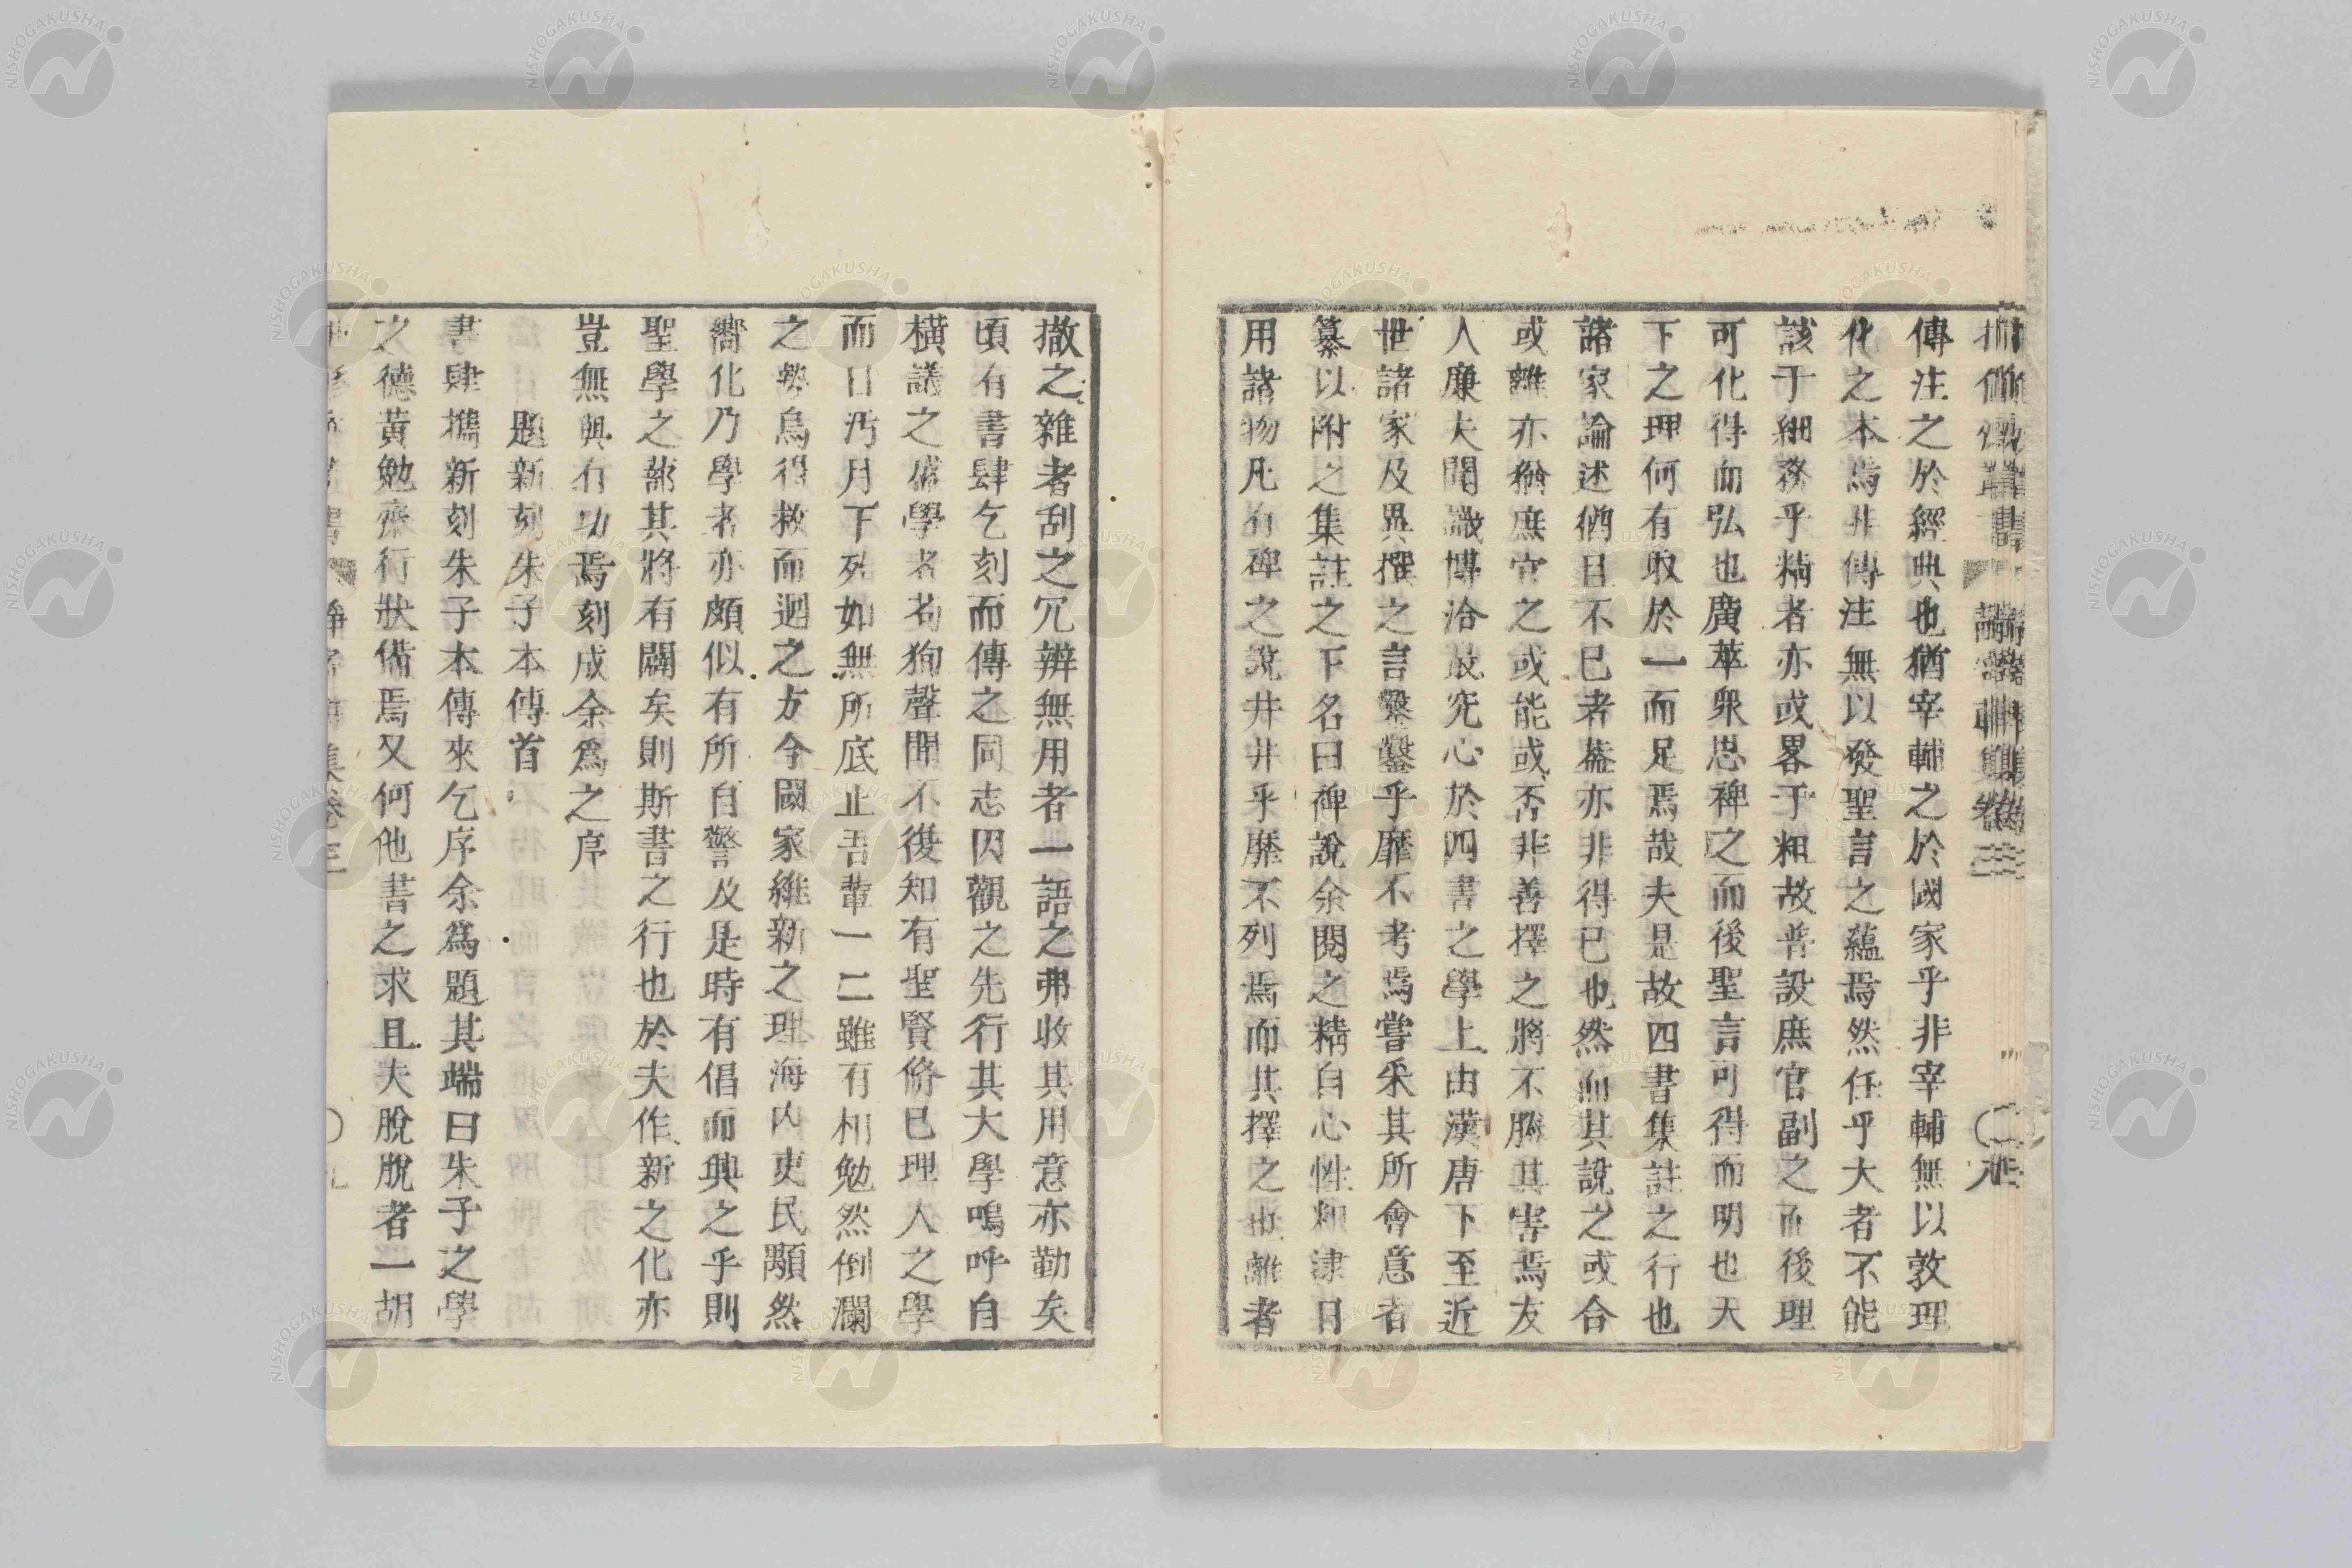 傳注之於經典也猶宰輔之於國家乎非宰輔無以敦理
化之本焉非傳注無以發聖言之蘊焉然任乎大者不能
該于細務乎精者亦或畧于粗故普設庶官副之而後理
可化得而弘也廣萃衆思裨之而後聖言可得而明也天
下之理何有取於一而足焉哉夫是故四書集註之行也
諸家論述猶且不已者蓋亦非得已也然而其說之或合
或離亦猶庶官之或能或否非善擇之將不勝其害焉友
人廉夫聞識博洽最究心於四書之學上由漢唐下至近
世諸家及異撰之言鑿鑿乎靡不考焉嘗采其所會意者
纂以附之集註之下名曰裨說余閱之精自心性粗逮日
用諸物凡有裨之說井井乎靡不列焉而其擇之也離者
撤之雜者刮之冗辨無用者一語之弗收其用意亦勤矣
頃有書肆乞刻而傳之同志因觀之先行其大學嗚呼自
橫議之盛學者苟狥聲聞不復知有聖賢脩己理人之學
而日沔月下死如無所底止吾輩一二雖有相勉然倒瀾
之勢烏得救而迴之方今國家維新之理海內吏民顒然
嚮化乃學者亦頗似有所自警及是時有倡而興之乎則
聖學之蔀其將有闢矣則斯書之行也於夫作新之化亦
豈無與有功焉刻成余爲之序
題新刻朱子本傳首
書肆攜新刻朱子本傳來乞序余爲題其端曰朱子之學
之德黃勉齋行狀備焉又何他書之求且夫脫脫者一胡
NISHOGAKUSHA